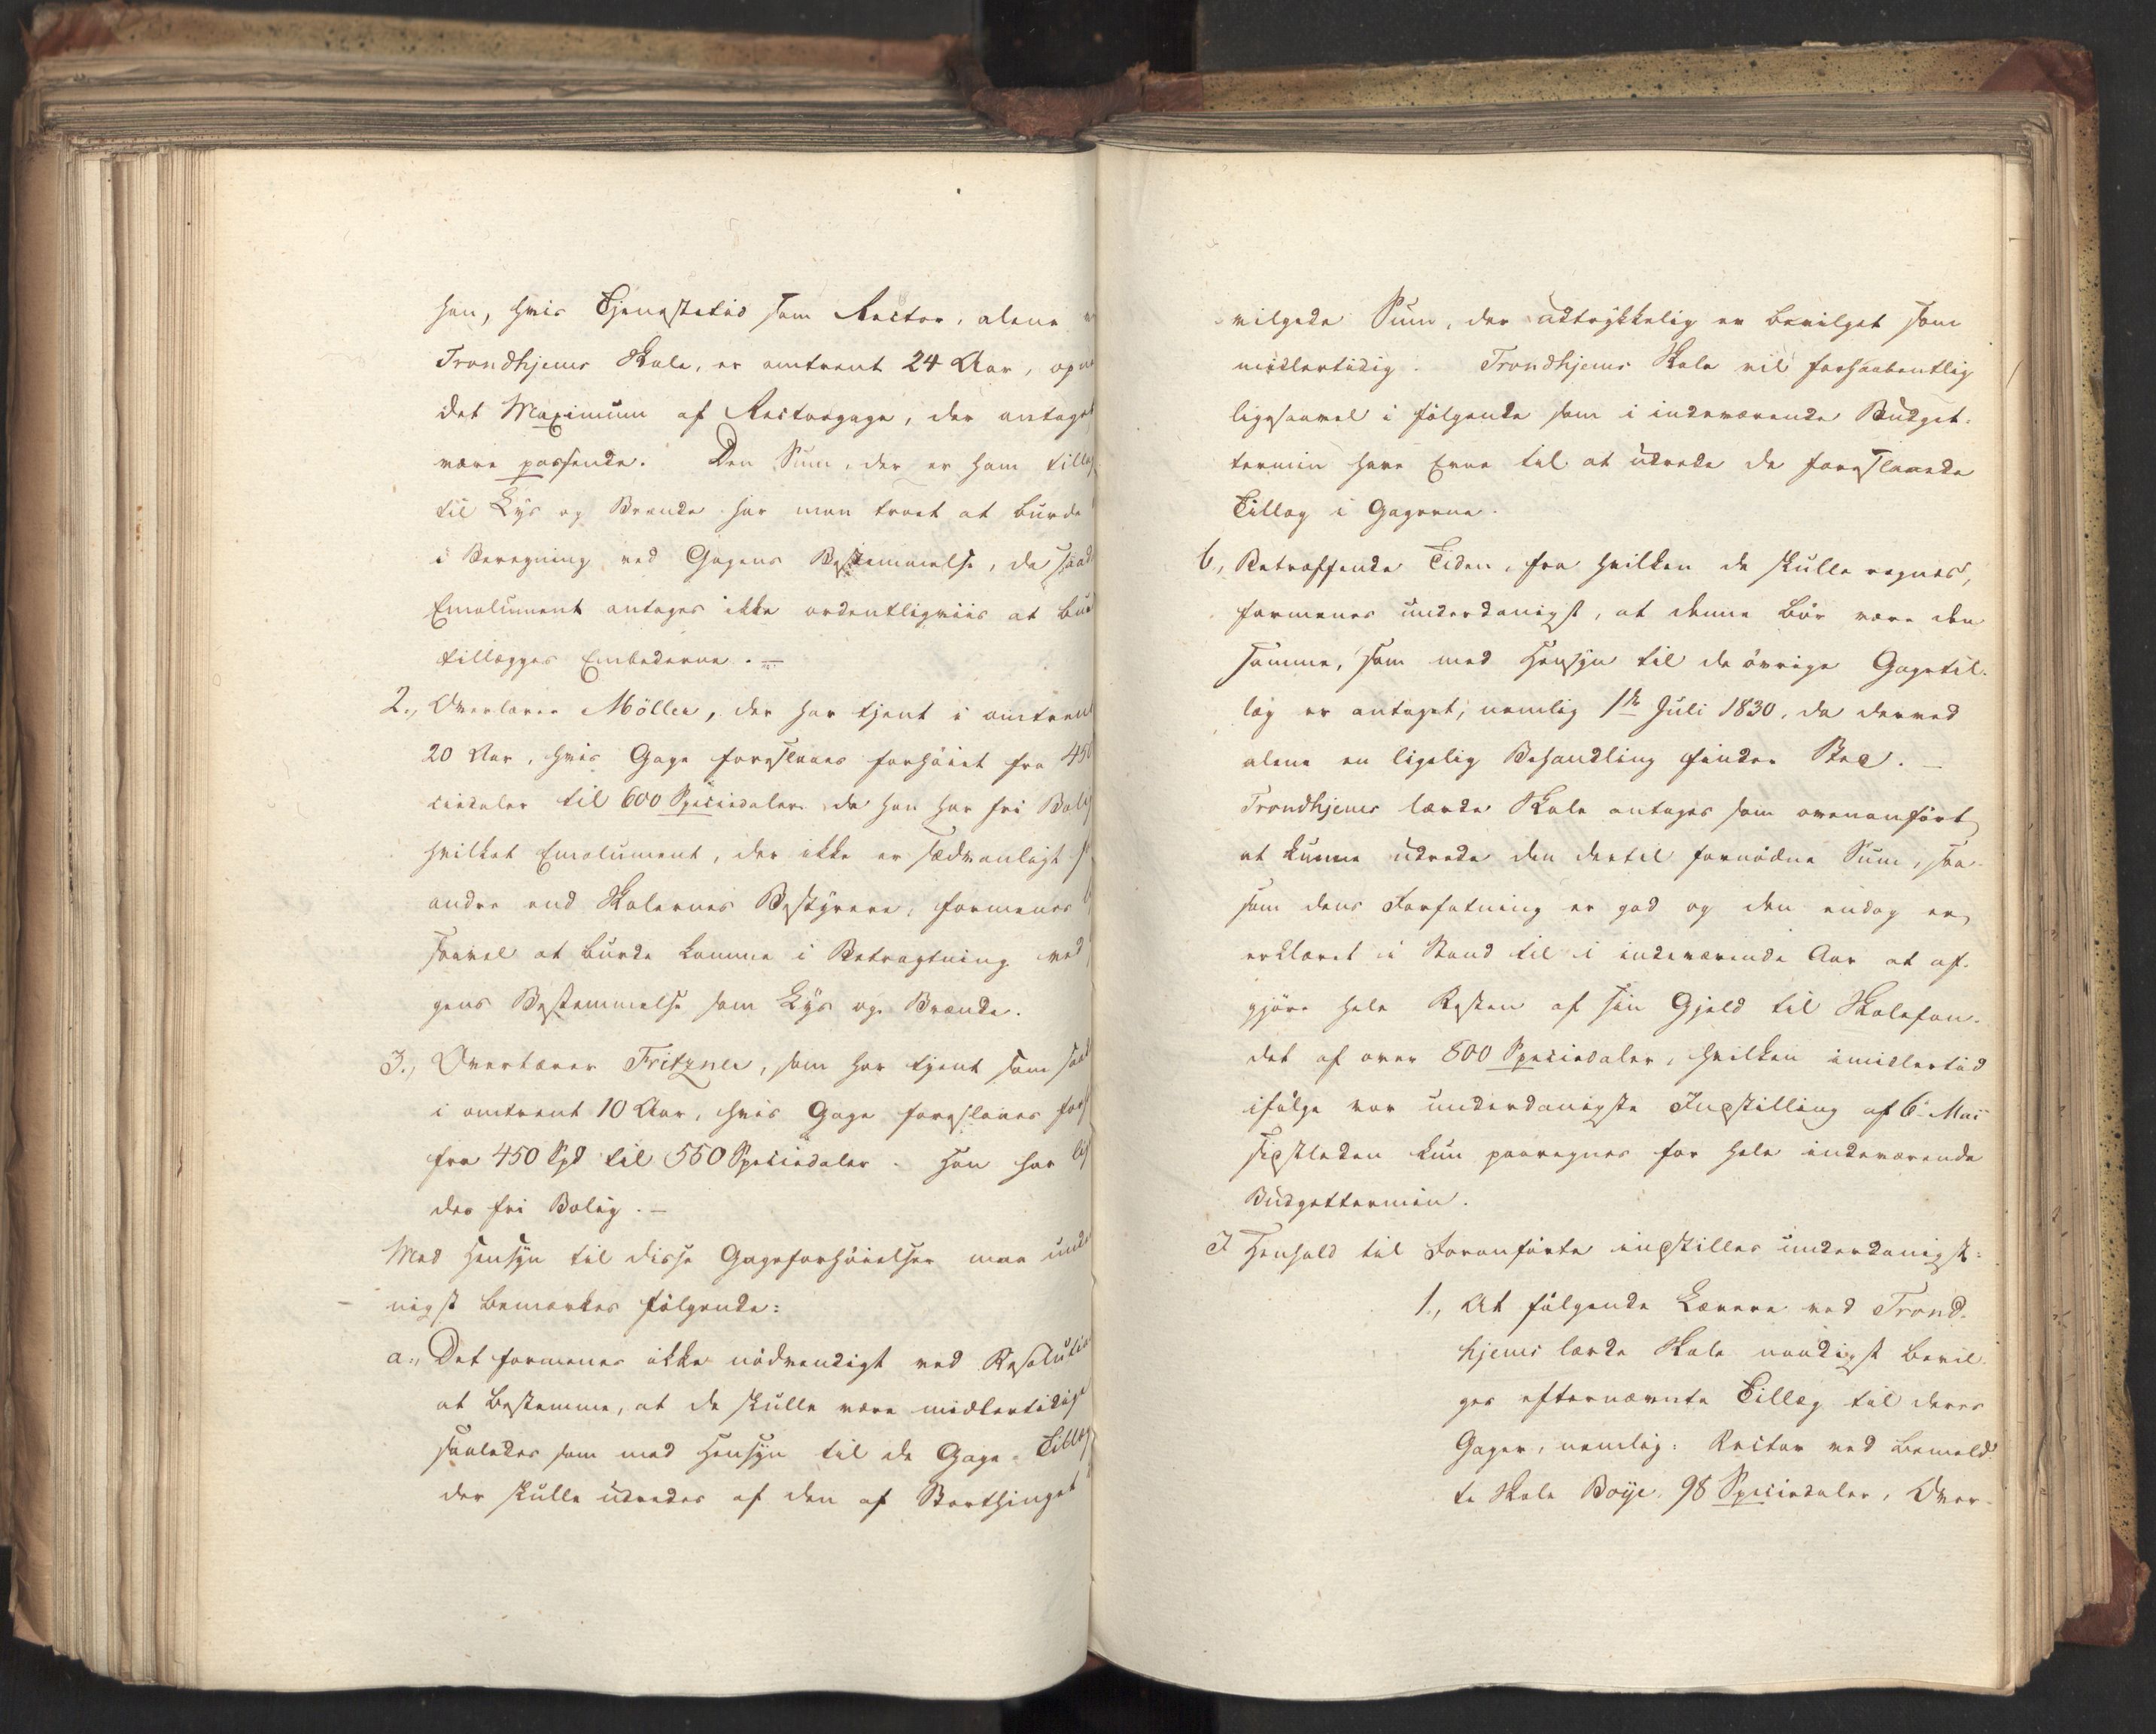 han, hvis Tjenestetid som Rector, alene
Trondhjems Skole, er omtrent 24 Aar, op
det Maximum af Rectorgage, der antages
være passende. Den Sum, der er ham tillag
til Lys og Brænde har man troet at burde
i Beregning ved Gagens Bestemmelse, da saad
Emolument antages ikke ordentligviis at bur
tillægges Embederne. —
2., Overlærer Möller, der har tjent i omtrent
20 Aar, hvis Gage foreslaaes forhöiet fra 450
ciedaler til 600 Speciedaler da han har fri Bolig
hvilket Emolument, der ikke er sædvanligt
andre end Skolernes Bestyrere, formenes
saavel at burde komme i Betragtning ved
gens Bestemmelse som Lys og Brænde.
3., Overlærer Fritzner, som har tjent som saad
i omtrent 10 Aar, hvis Gage foreslaaes forh
fra 450 Spd til 550 Speciedaler. Han har lig
des fri Bolig. —
Med Hensyn til disse Gageforhöielser maa unde
nigst bemærkes fölgende:
a., Det formenes ikke nödvendigt ved Resolutio
at bestemme, at de skulle være midlertidige
saaledes som med Hensyn til de Gage-Tillæg
der skulle udredes af den af Storthinget
vilgede Sum, der udtrykkelig er bevilget som
midlertidig. Trondhjems Skole vil forhaabentlig
ligesaavel i fölgende som i indeværende Budget-
termin have Evne til at udrede de foreslaaede
Tillæg i Gagerne.
b, Betræffende Tiden, fra hvilken de skulle regnes,
formenes underdanigst, at denne bör være den
samme, som med Hensyn til de övrige Gagetil-
læg er antaget, nemlig 1ste Juli 1830, da derved
alene en ligelig Behandling finder Sted. —
Trondhjems lærde Skole antages som ovenanfört
at kunne udrede den dertil fornödne Sum, saa-
som dens Forfatning er god og den endog er
erklæret i Stand til i indeværende Aar at af-
gjöre hele Resten af sin Gjeld til Skolefon-
det af over 800 Speciedaler, hvilken imidlertid
ifölge vor underdanigste Indstilling af 6te Mai
sidstleden kun paaregnes for hele indeværende
Budgettermin.
I Henhold til Foranförte indstilles underdanigst:
1., At fölgende Lærere ved Trond-
hjems lærde Skole naadigst bevil-
ges efternævnte Tillæg til deres
Gager, nemlig: Rector ved bemeld-
te Skole Boye, 98 Speciedaler, Over-